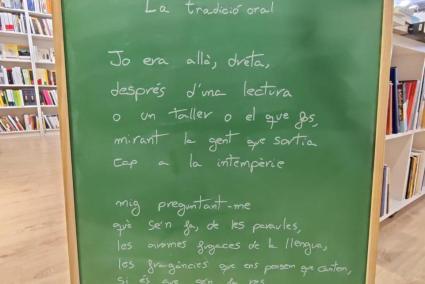 La tradició oral
Jo era allà, dreta,
després d'una lectura
o un taller o el que fos,
mirant la gent que sortia
cap a la intempèrie
mig preguntant-me
què se'n fa, de les paraules,
les aromes fugaces de la llengua,
les fragàncies que ens pensem que canten,
si és que se'n fa res